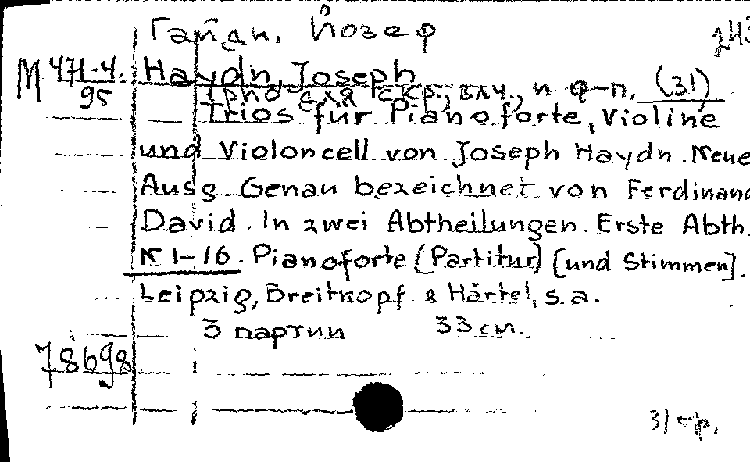 Гайдн, Йозеф
243
М 471-4
95
Haydn, Joseph
Трио для скр., влч., и ф-п. (31)
Trios für Pianoforte, Violine
und Violoncell von Joseph Haydn. Neue
Ausg. Genau bezeichnet von Ferdinand
David. In zwei Abtheilungen. Erste Abth.
N 1-16. Pianoforte (Partitur) [und Stimmen].
Leipzig, Breitkopf & Härtel, s.a.
3 партии 33 см.
78698
31